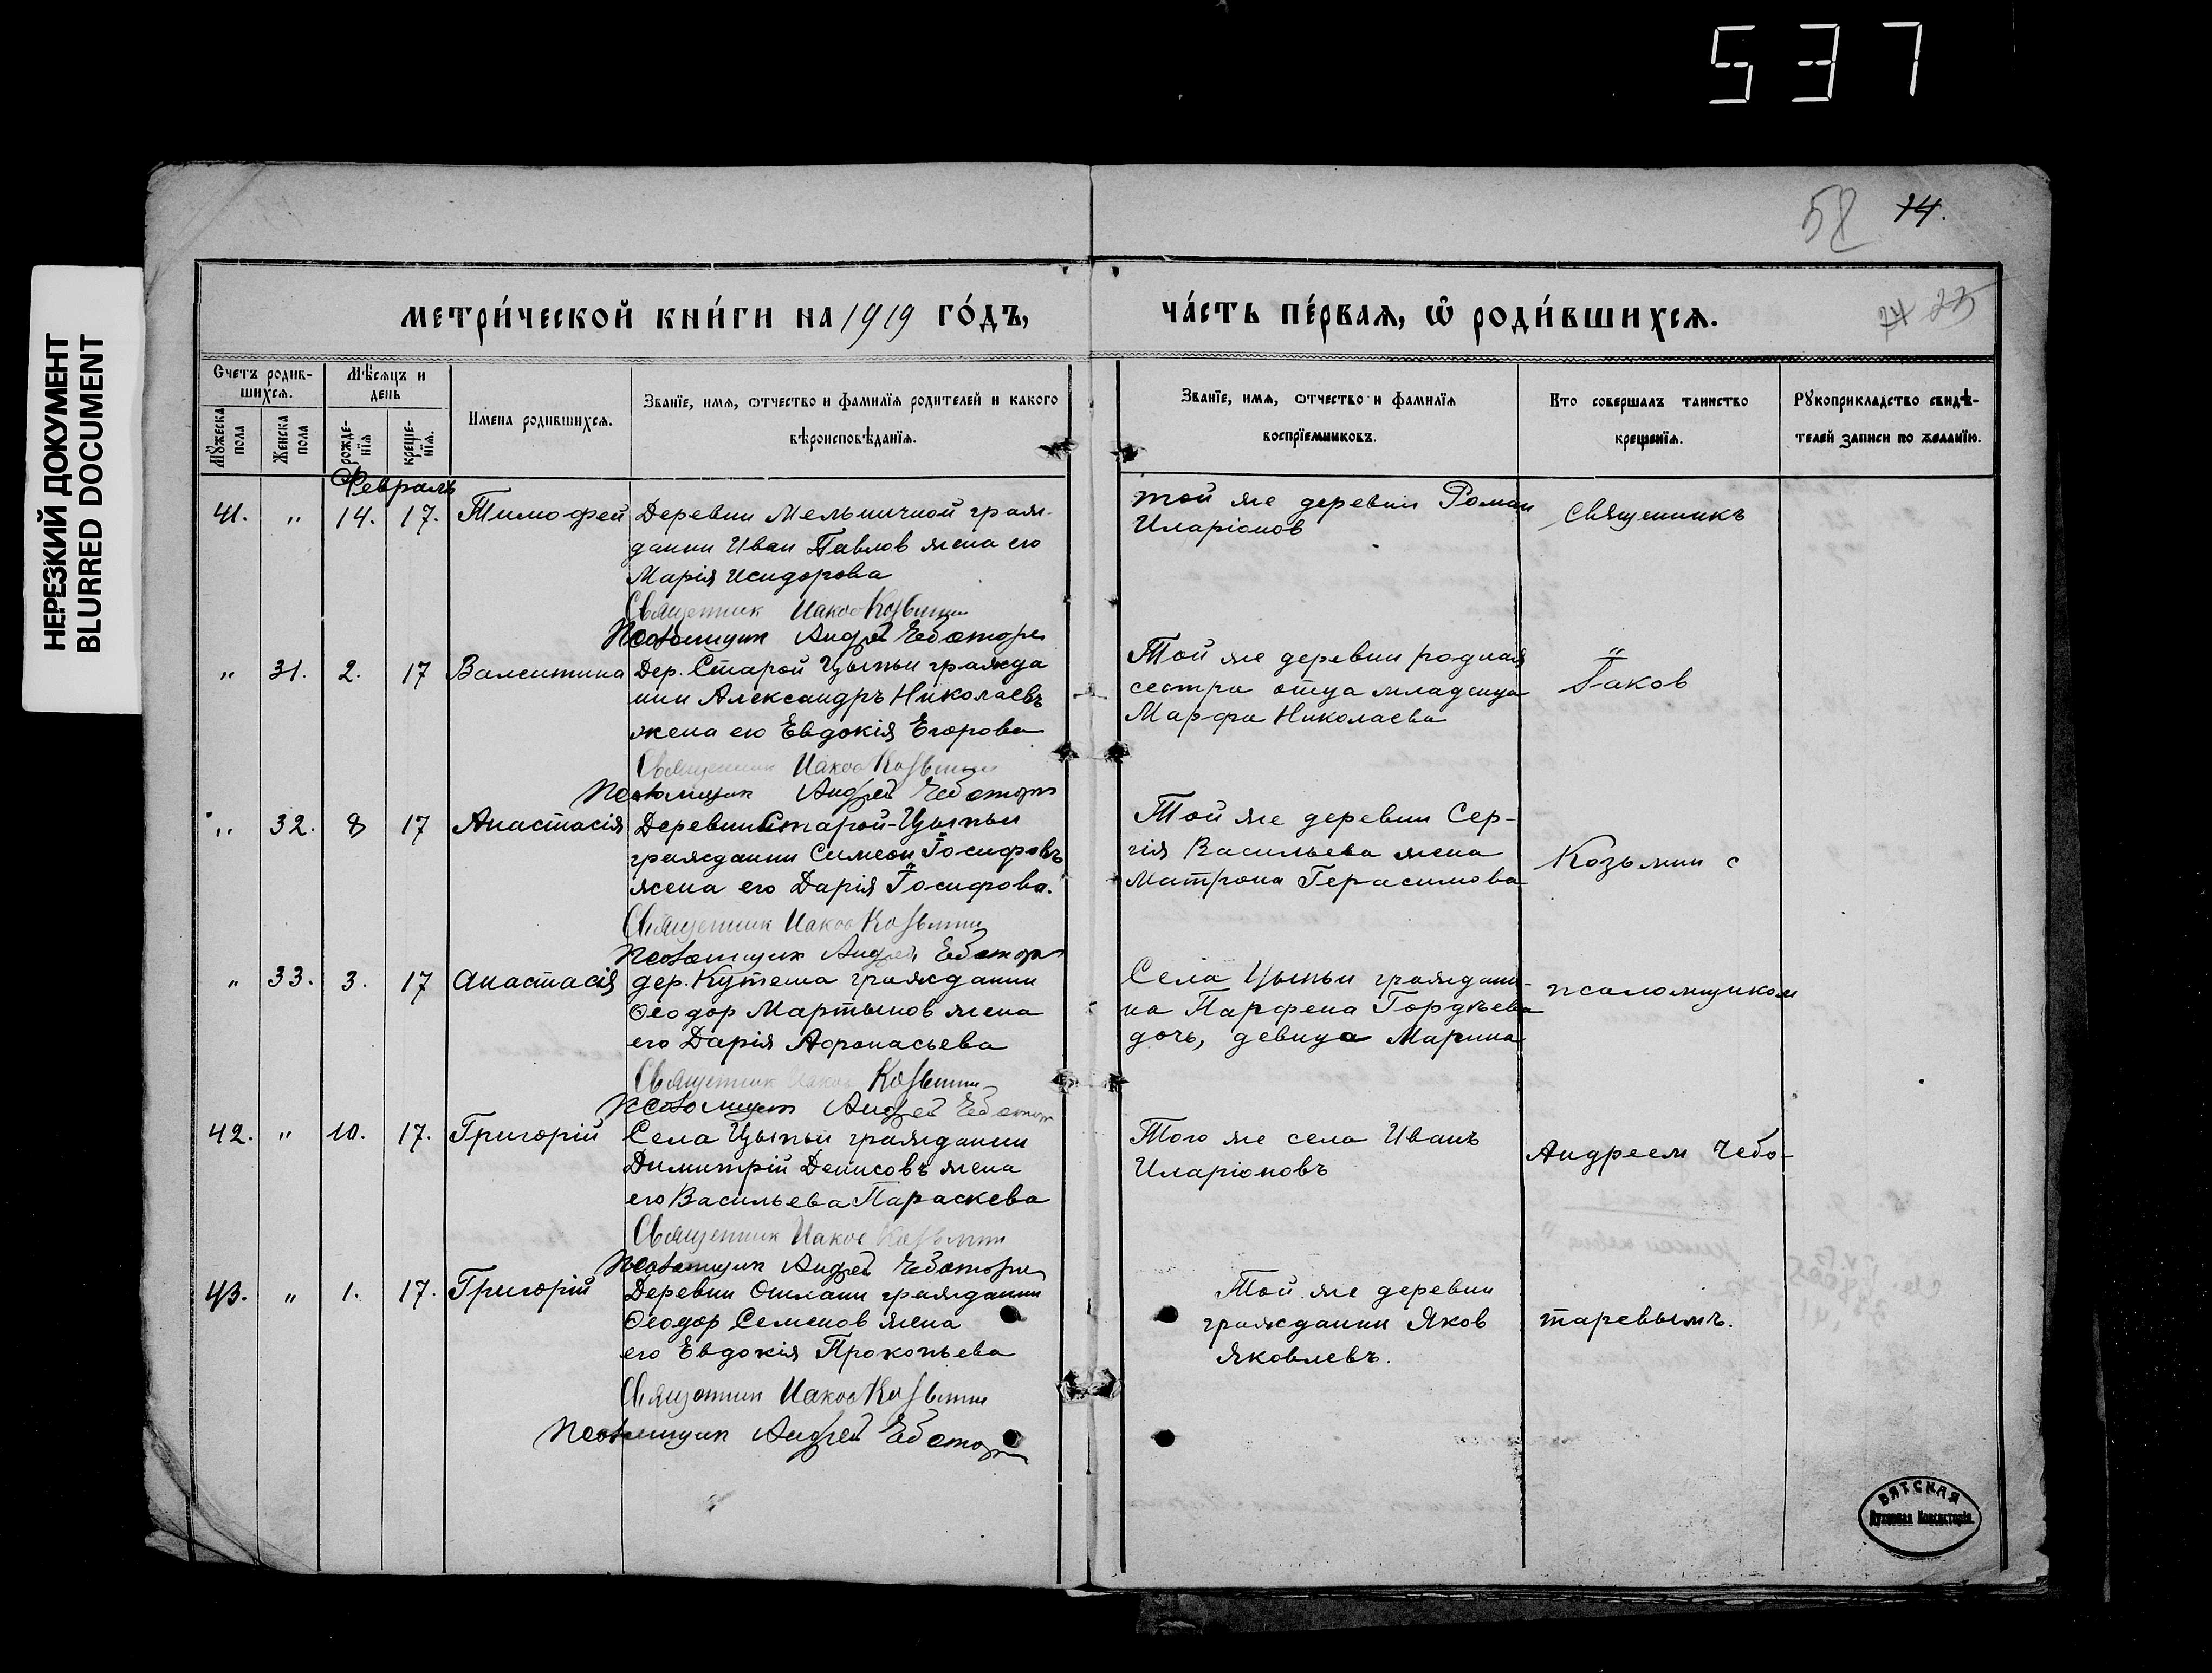 537
НЕРЕЗКИЙ ДОКУМЕНТ
BLURRED DOCUMENT
58 14.
МЕТРИ́ЧЕСКОЙ КНИ́ГИ НА 1919 ГО́ДЪ,
ЧА́СТЬ ПЕ́РВАѦ, Ѡ҆ РОДИ́ВШИХСѦ.
24 25
Счетъ родив-
шихсѧ.
Мѣсѧцъ и
день
Мꙋжеска
пола
Женска
пола
рожде-
нїѧ
креще-
нїѧ.
Имена родившихсѧ.
Званїе, имѧ, ѿчество и фамилїѧ родителей и какого
вѣроисповѣданїѧ.
Званїе, имѧ, ѿчество и фамилїѧ
воспрїемниковъ.
Кто совершалъ таинство
крещенїѧ.
Рꙋкоприкладство свидѣ-
телей записи по желанїю.
Февраль
41. " 14. 17. Тимофей Деревни Мельничной граж-
данин Иван Павлов жена его
Марія Исидорова
Священник Иаков Козьмин
Псаломщик Андрей Чеботарев
той же деревни Роман
Иларіонов
Священникъ
" 31. 2. 17 Валентина Дер. Старой Цыпьи гражда
нин Александръ Николаевъ
жена его Евдокія Егорова
Священник Иаков Козьмин
Псаломщик Андрей Чеботарев
Той же деревни родная
сестра отца младенца
Марфа Николаева
Іаков
" 32. 8 17 Анастасія Деревни Старой-Цыпьи
гражданин Симеон Іосифовъ
жена его Дарія Іосифова.
Священник Иаков Козьмин
Псаломщик Андрей Чеботарев
Той же деревни Сер-
гія Васильева жена
Матрона Герасимова
Козьмин с
" 33. 3. 17 Анастасія дер. Кутеша гражданин
Ѳеодор Мартынов жена
его Дарія Афонасьева
Священник Иаков Козьмин
Псаломщик Андрей Чеботарев
Села Цыпьи граждани-
на Парфена Гордѣева
дочь, девица Марина
псаломщиком
42. " 10. 17. Григорій Села Цыпьи гражданин
Димитрій Денисовъ жена
его Васильева Параскева
Священник Иаков Козьмин
Псаломщик Андрей Чеботарев
Того же села Иванъ
Иларіоновъ
Андреем Чебо-
43. " 1. 17. Григорій Деревни Ошлани гражданин
Ѳеодор Семенов жена
его Евдокія Прокопьева
Священник Иаков Козьмин
Псаломщик Андрей Чеботарев
Той же деревни
гражданин Яков
Яковлевъ.
таревымъ.
ВЯТСКАЯ
Духовная Консисторія.